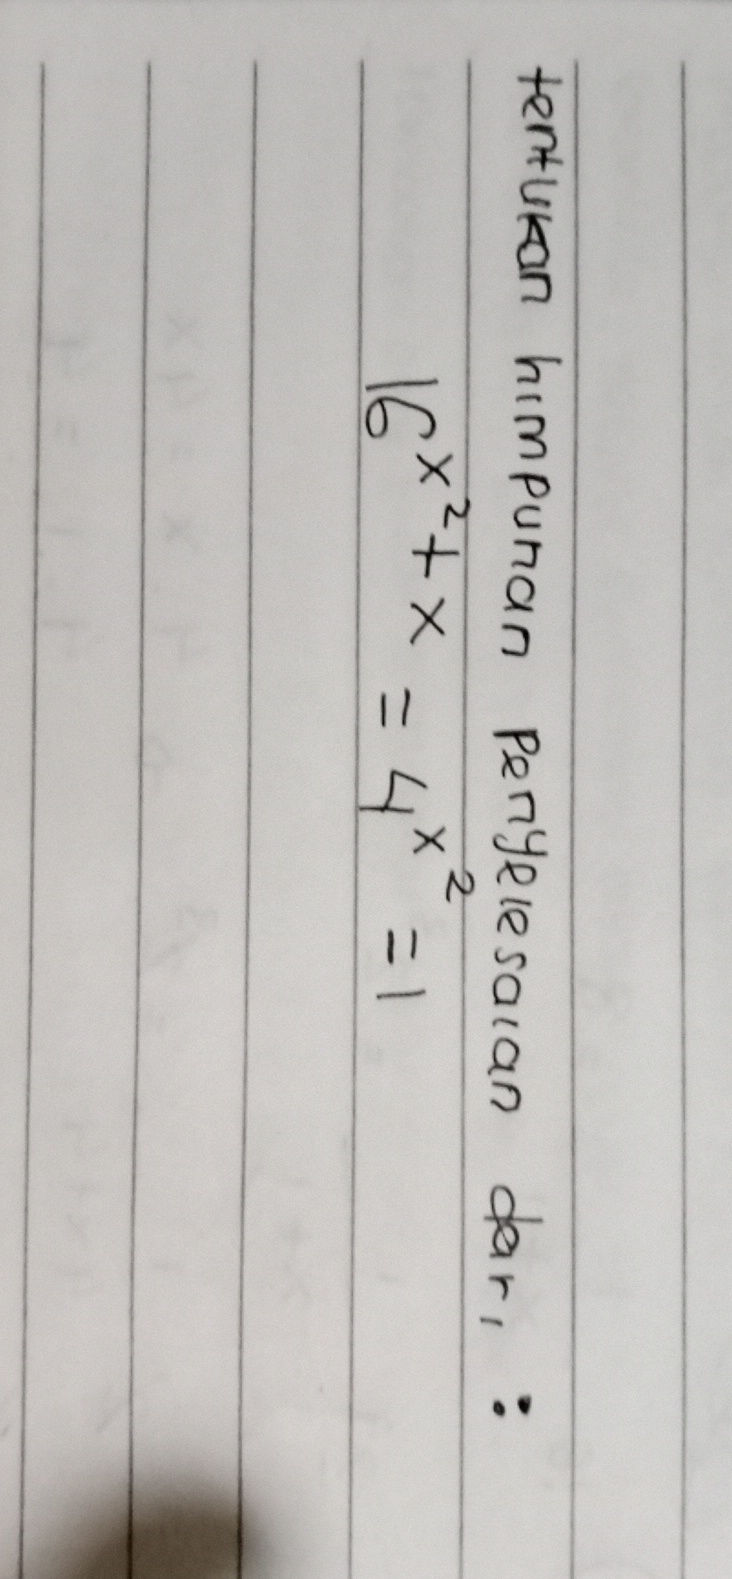 tentukan himpunan Penyelesaian dari :
16^x²+x = 4^x² = 1